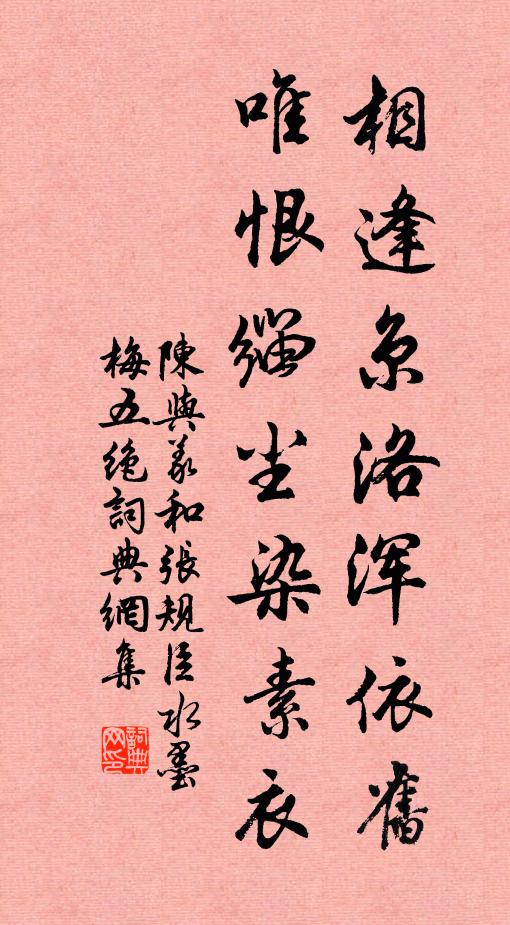 相逢京洛浑依舊
唯恨缁尘染素衣
陳與义和張規臣水墨
梅五绝詞典網集
詞典网印